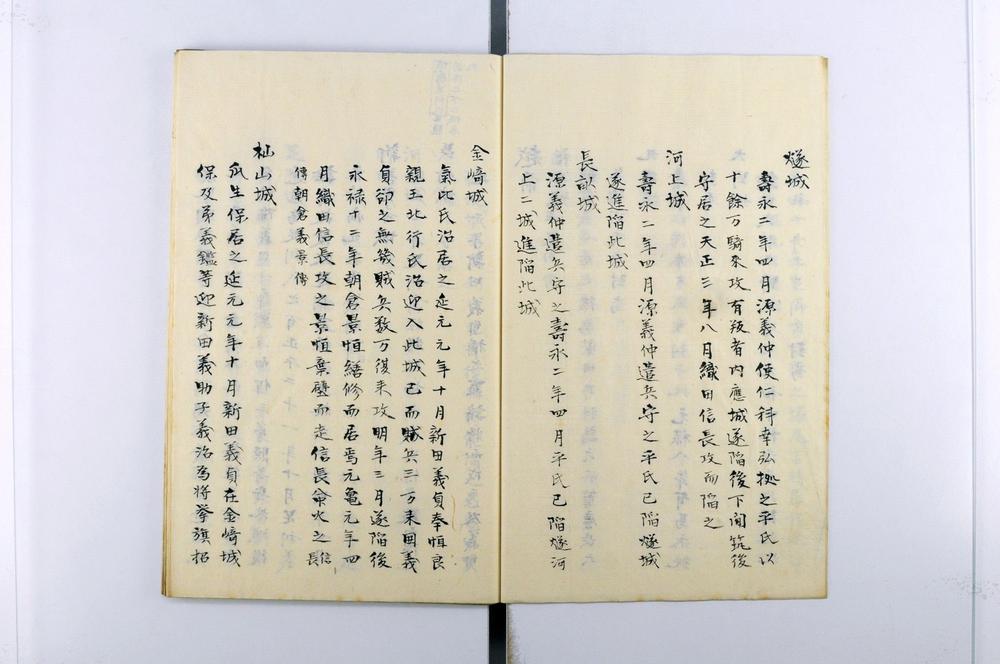 燧城
壽永二年四月源義仲使仁科幸弘拠之平氏以
十餘万騎来攻有叛者内應城遂陥後下間筑後
守居之天正三年八月織田信長攻而陥之
河上城
壽永二年四月源義仲遣兵守之平氏已陥燧城
遂進陥此城
長畝城
源義仲遣兵守之壽永二年四月平氏已陥燧河
上二城進陥此城
金﨑城
氣比氏治居之延元元年十月新田義貞奉恒良
親王北行氏治迎入此城已而賊兵三万来囲義
貞卻之無幾賊兵数万復来攻明年三月遂陥後
永禄十二年朝倉景恒繕修而居焉元亀元年四
月織田信長攻之景恒棄壁而走信長命火之信長
傳朝倉義景傳
杣山城
瓜生保居之延元元年十月新田義貞在金﨑城
保及弟義鑑等迎新田義助子義治為将挙旗招